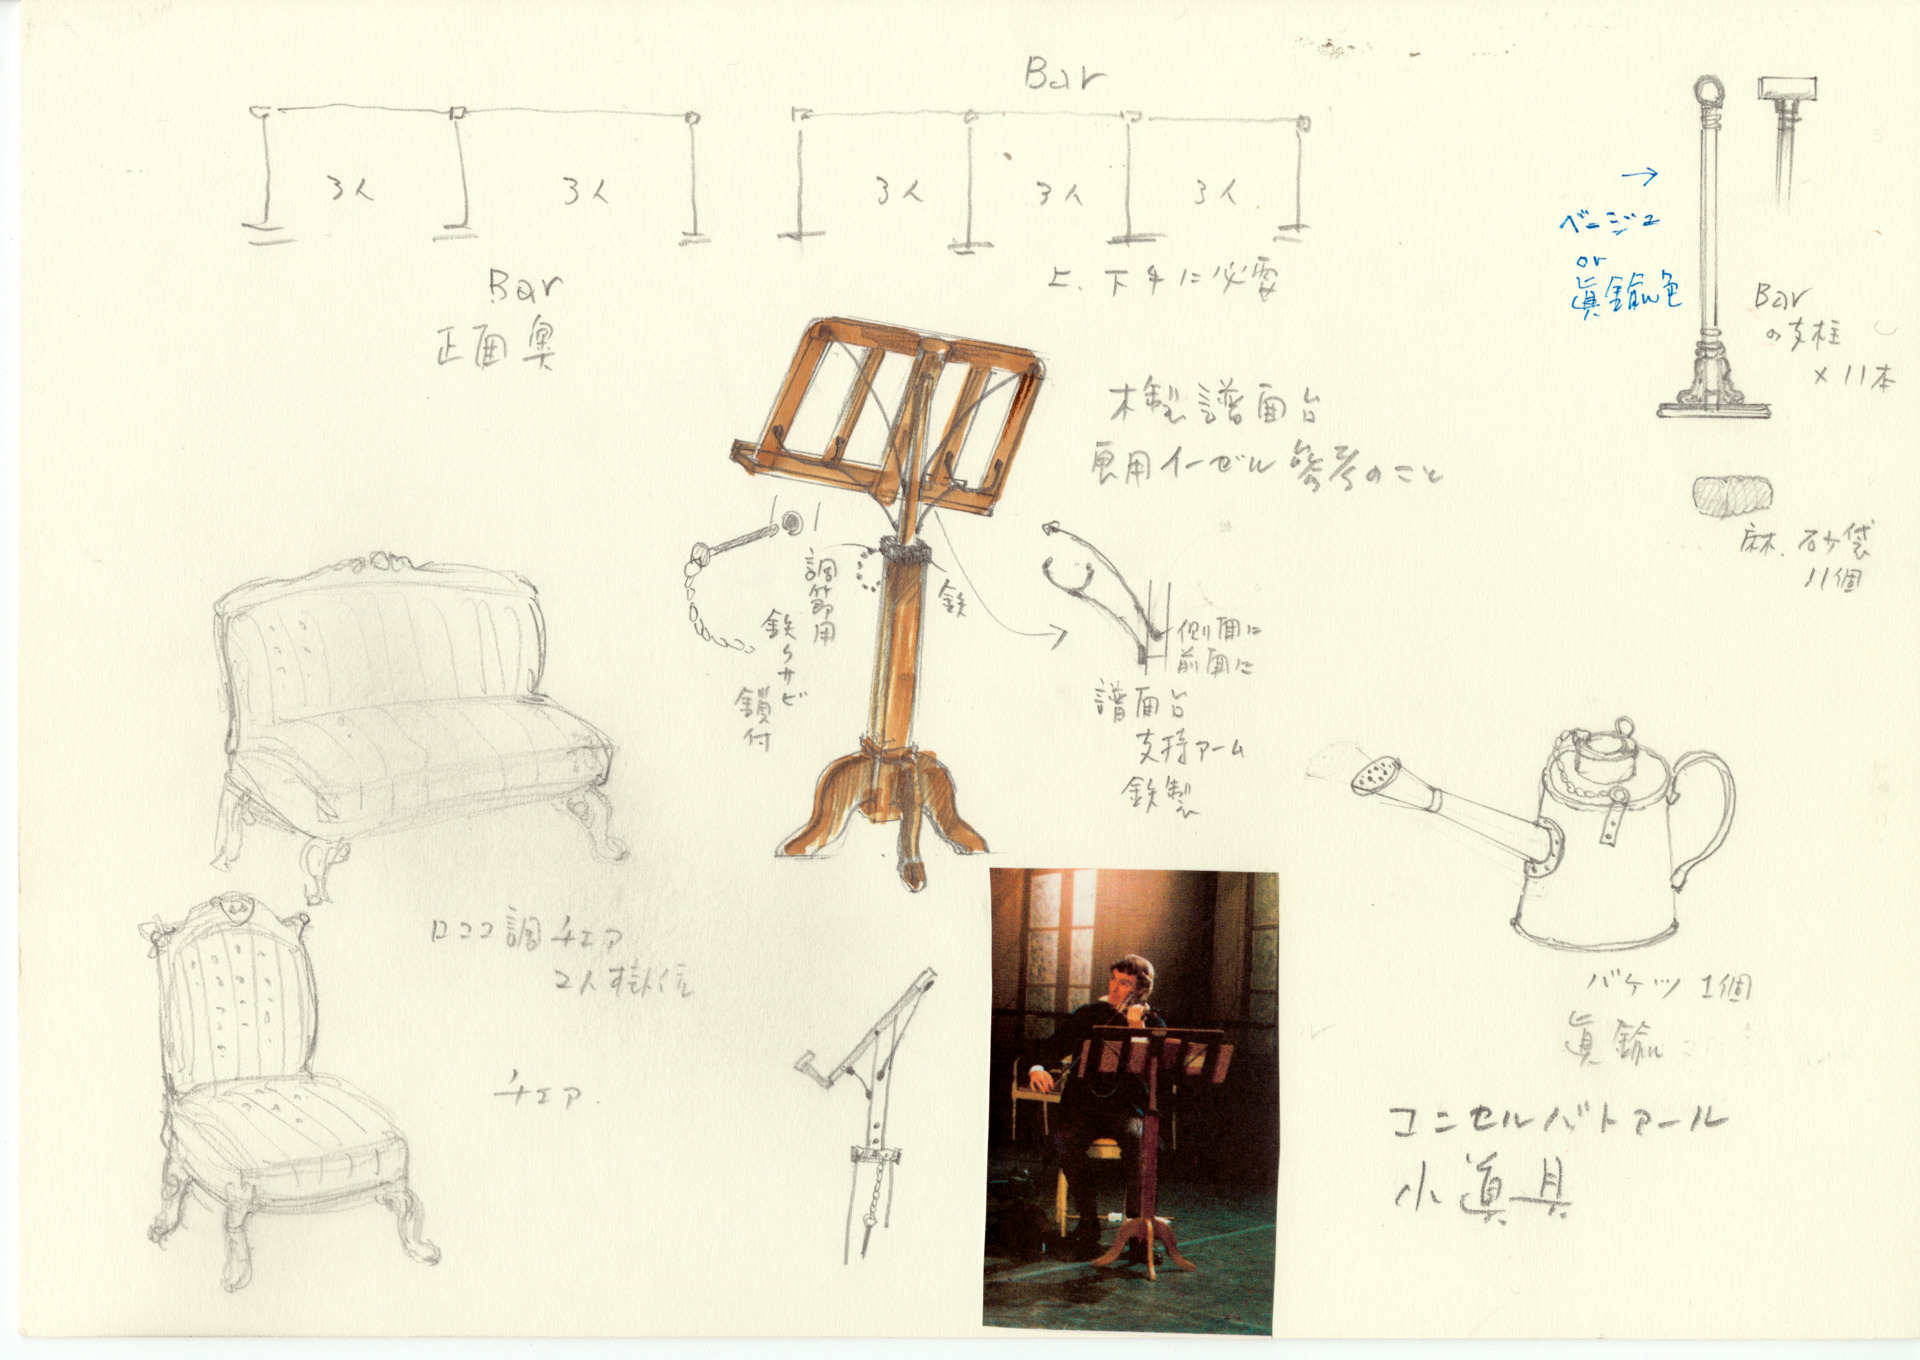 Bar
3人
3人
3人
3人
3人
Bar
正面奥
上、下手に必要
→
ベージュ
or
眞鍮色
Bar
の支柱
×11本
木製譜面台
画用イーゼル参考のこと
麻、砂袋
11個
調節用
鉄クサビ
鎖付
鉄
側面に
前面に
譜面台
支持アーム
鉄製
ロココ調チェア
2人掛位
チェア.
バケツ 1個
眞鍮
コンセルバトアール
小道具